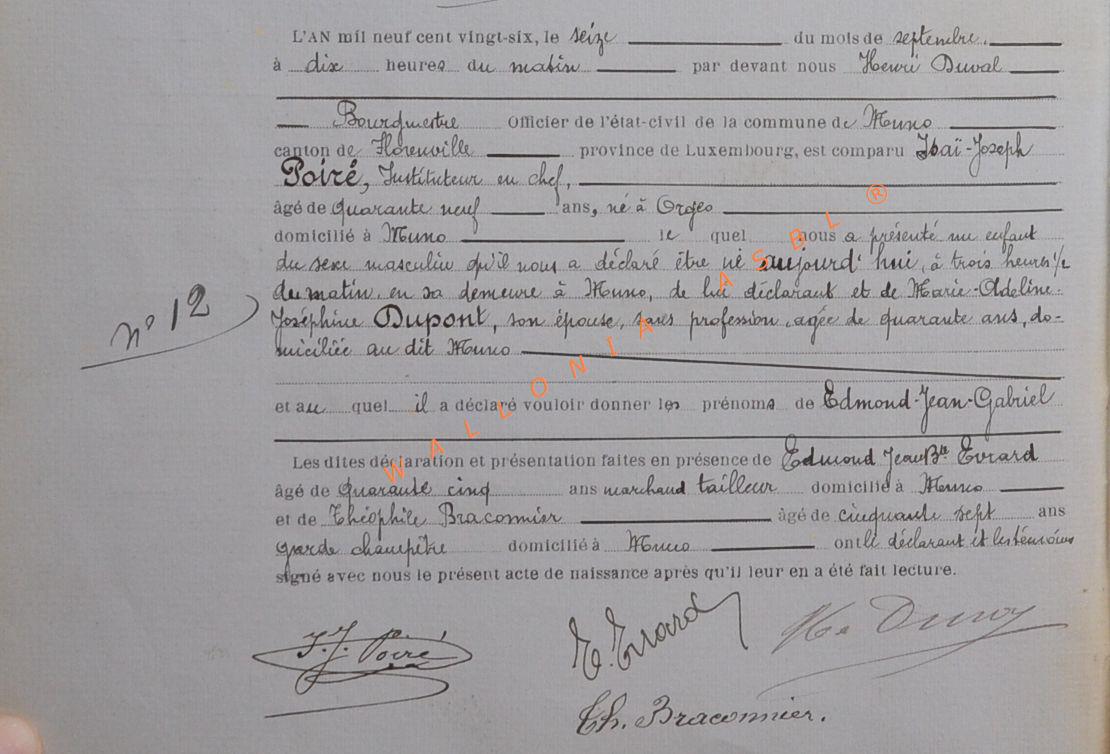 L'AN mil neuf cent vingt-six, le seize du mois de septembre.
à dix heures du matin par devant nous Henri Duval
Bourgmestre Officier de l'état-civil de la commune de Muno
canton de Florenville province de Luxembourg, est comparu Isaï-Joseph
Poiré, Instituteur en chef,
âgé de quarante neuf ans, né à Orgeo
domicilié à Muno le quel nous a présenté un enfant
du sexe masculin qu'il nous a déclaré être né aujourd'hui, à trois heures 1/2
du matin, en sa demeure à Muno, de lui déclarant et de Marie-Adeline-
nº 12
Joséphine Dupont, son épouse, sans profession, agée de quarante ans, do-
miciliée au dit Muno
et au quel il a déclaré vouloir donner les prénoms de Edmond-Jean-Gabriel
Les dites déclaration et présentation faites en présence de Edmond Jean Bte Evrard
âgé de Quarante cinq ans marchand tailleur domicilié à Muno
et de Théophile Braconnier âgé de cinquante sept ans
garde champêtre domicilié à Muno ont le déclarant et les témoins
signé avec nous le présent acte de naissance après qu'il leur en a été fait lecture.
J. J. Poiré
E. Evrard
Th. Braconnier.
WALLONIA ASBL ®